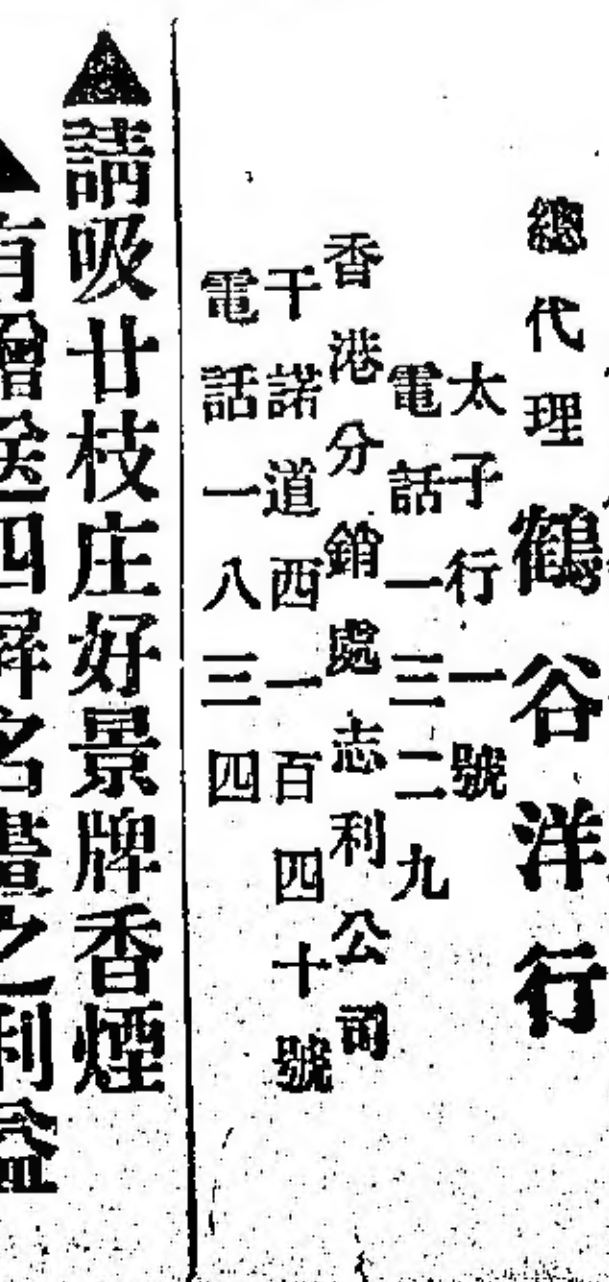 總代理 鶴谷洋行
太子行一號
電話一三二九
香港分銷處志利公司
干諾道西一百四十號
電話一八三四
請吸廿枝庄好景牌香煙
有贈送四屏名畫之利益